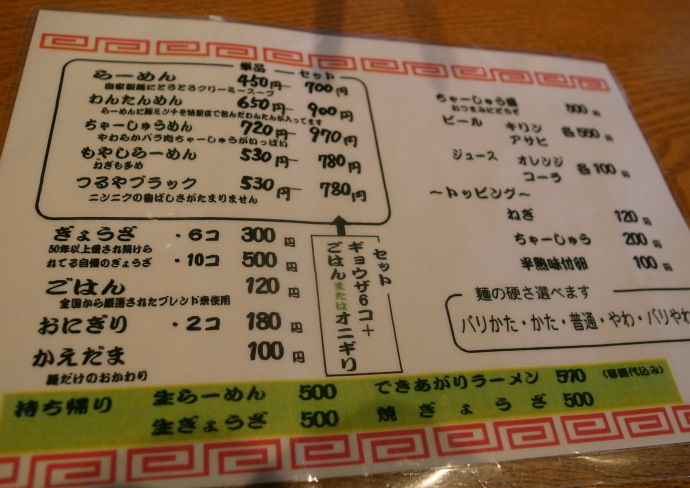 単品 セット
らーめん 450円 700円
自家製麺にとろとろクリーミースープ
わんたんめん 650円 900円
らーめんに豚ミンチを自製皮で包んだわんたんが入ってます
ちゃーしゅうめん 720円 970円
やわらかバラ肉ちゃーしゅうがいっぱい
もやしらーめん 530円 780円
ねぎも多め
つるやブラック 530円 780円
ニンニクの香ばしさがたまりません
ぎょうざ ・6コ 300円
50年以上愛され続けら
れてる自慢のぎょうざ ・10コ 500円
ごはん 120円
全国から厳選されたブレンド米使用
おにぎり ・2コ 180円
かえだま 100円
麺だけのおかわり
セット
ギョウザ6コ+
ごはんまたはオニギリ
ちゃーしゅう盛 500円
おつまみにどうぞ
ビール キリン 各550円
アサヒ
ジュース オレンジ 各100円
コーラ
～トッピング～
ねぎ 120円
ちゃーしゅう 200円
半熟味付卵 100円
麺の硬さ選べます
バリかた・かた・普通・やわ・バリやわ
持ち帰り 生らーめん 500 できあがりラーメン 570 (容器代込み)
生ぎょうざ 500 焼ぎょうざ 500